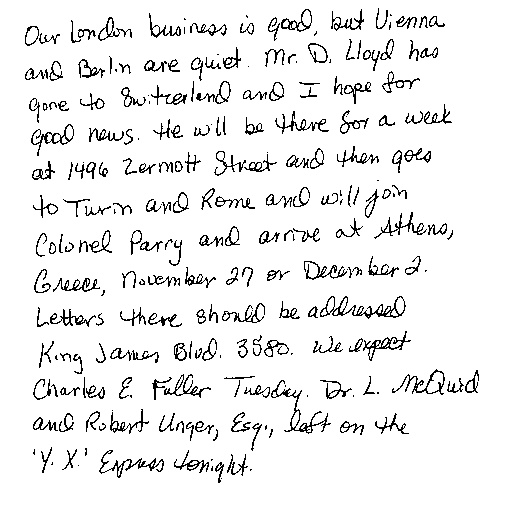 Our London business is good, but Vienna
and Berlin are quiet. Mr. D. Lloyd has
gone to Switzerland and I hope for
good news. He will be there for a week
at 1496 Zermott Street and then goes
to Turin and Rome and will join
Colonel Parry and arrive at Athens,
Greece, November 27 or December 2.
Letters there should be addressed
King James Blvd. 3580. We expect
Charles E. Fuller Tuesday. Dr. L. McQuid
and Robert Unger, Esq., left on the
'Y. X.' Express tonight.